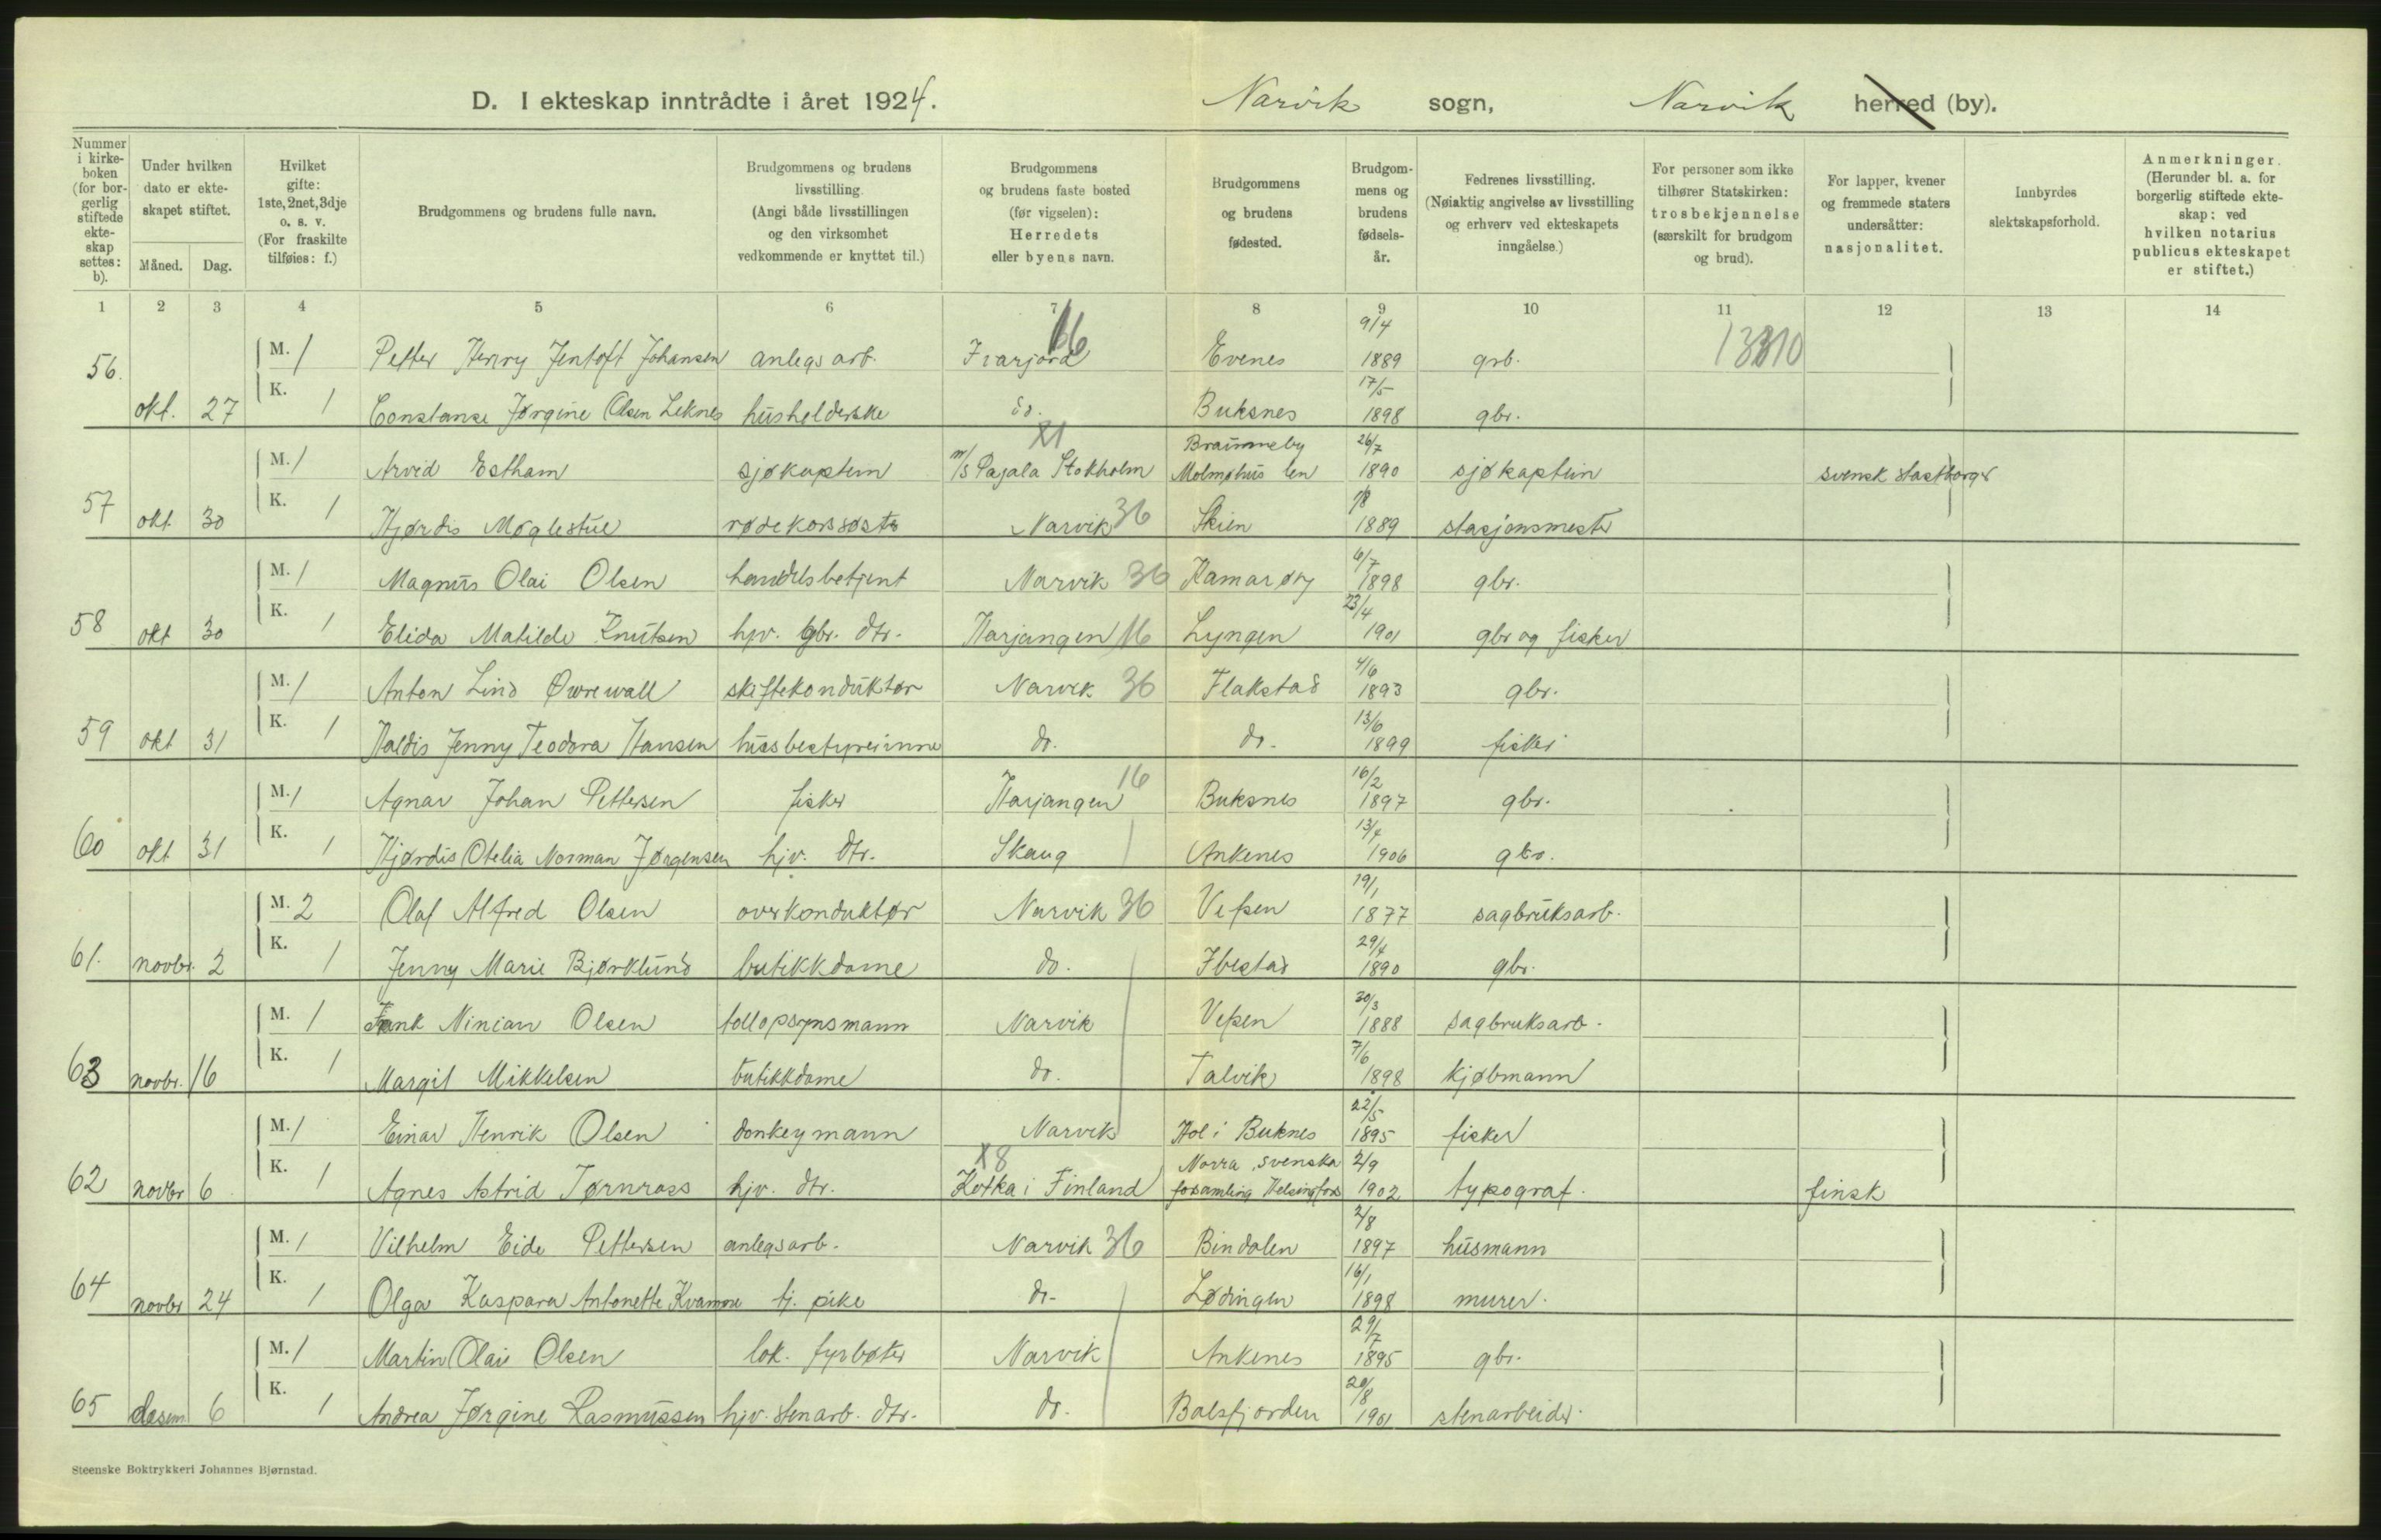 D. I ekteskap inntrådte i året 1924. Narvik sogn, Narvik herred (by).
Nummer i kirke-boken (for bor-gerlig stiftede ekte-skap settes: b).
Under hvilken dato er ekte-skapet stiftet.
Måned. Dag.
Hvilket gifte: 1ste, 2net, 3dje o. s. v. (For fraskilte tilføies: f.)
Brudgommens og brudens fulle navn.
Brudgommens og brudens livsstilling. (Angi både livsstillingen og den virksomhet vedkommende er knyttet til.)
Brudgommens og brudens faste bosted (før vigselen): Herredets eller byens navn.
Brudgommens og brudens fødested.
Brudgom-mens og brudens fødsels-år.
Fedrenes livsstilling. (Nøiaktig angivelse av livsstilling og erhverv ved ekteskapets inngåelse.)
For personer som ikke tilhører Statskirken: trosbekjennelse (særskilt for brudgom og brud).
For lapper, kvener og fremmede staters undersåtter: nasjonalitet.
Innbyrdes slektskapsforhold.
Anmerkninger. (Herunder bl. a. for borgerlig stiftede ekte-skap: ved hvilken notarius publicus ekteskapet er stiftet.)
1 2 3 4 5 6 7 8 9 10 11 12 13 14
56. M. 1 Petter Henry Jentoft Johansen anlegsarb. 16 Evenes 9/4 1889 grb. 13310
okt. 27 K. 1 Constanse Jørgine Olsen Leknes husholderske do. Buksnes 17/5 1898 gbr.
57 M. 1 Arvid Estham sjøkaptein X1 m/s Pajala Stokholm Malmøhus len 26/7 1890 sjøkaptein svensk statborger
okt 30 K. 1 Hjørdis Møglestue rødekorssøster Narvik 36 Skien 1889 stasjonsmester
58 M. 1 Magnus Olai Olsen handelsbetjent Narvik 36 Hamarøy 6/7 1898 gbr.
okt 30 K. 1 Elida Matilde Knutsen hjv. gbr. dtr. Harjangen 16 Lyngen 23/4 1901 gbr og fisker
59 M. 1 Anton Lind Øwrewall skiftekonduktør Narvik 36 Flakstad 4/6 1893 gbr.
okt 31 K. 1 Haldis Jenny Teodora Hansen husbestyrerinne do. do. 13/6 1899 fisker
60 M. 1 Agnar Johan Pettersen fisker Harjangen 16 Buksnes 16/2 1897 gbr.
okt 31 K. 1 Hjørdis Otelia Norman Jørgensen hjv. dtr. Skaug Ankenes 13/4 1906 gbr.
61. M. 2 Olaf Alfred Olsen overkonduktør Narvik 36 Vefsen 19/1 1877 sagbruksarb.
novbr. 2 K. 1 Jenny Marie Bjørklund butikkdame do. Ibestad 29/4 1890 gbr.
63 M. 1 Frank Ninian Olsen tollopsynsmann Narvik Vefsen 30/3 1888 sagbruksarb.
novbr. 16 K. 1 Margit Mikkelsen butikkdame do. Talvik 7/6 1898 kjøbmann
62 M. 1 Einar Henrik Olsen donkeymann Narvik Hol i Buknes 22/5 1895 fisker
novbr 6 K. 1 Agnes Astrid Tørnross hjv. dtr. X8 Kotka i Finland Norra svenska forsamling Helsingfors 2/9 1902 typograf. finsk
64 M. 1 Vilhelm Eide Pettersen anlegsarb. Narvik 36 Bindalen 2/8 1897 husmann
novbr 24 K. 1 Olga Kaspara Antonette Kvamme tj. pike do. Lødingen 16/1 1898 murer.
65 M. 1 Martin Olai Olsen lok. fyrbøter Narvik Ankenes 29/7 1895 gbr.
desem 6 K. 1 Andrea Jørgine Rasmussen hjv. stenarb. dtr. do. Balsfjorden 20/8 1901 stenarbeider.
Steenske Boktrykkeri Johannes Bjørnstad.